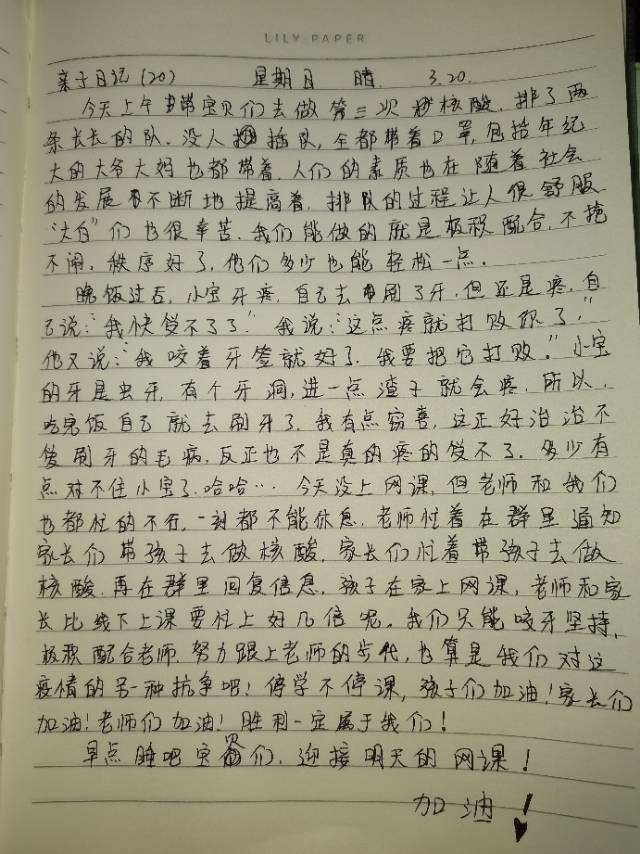 LILY PAPER
亲子日记(20) 星期日 晴 3.20.
今天上午带宝贝们去做第三次核酸.排了两
条长长的队.没人插队,全都带着口罩,包括年纪
大的大爷大妈也都带着.人们的素质也在随着社会
的发展不断地提高着.排队的过程让人很舒服
“大白”们也很辛苦.我们能做的就是极积配合,不挽
不闹.秩序好了,他们多少也能轻松一点.
晚饭过后,小宝牙疼,自己去刷了牙,但还是疼,自
己说:“我快受不了了”我说:“这点疼就打败你了,”
他又说:“我咬着牙签就好了.我要把它打败.”小宝
的牙是虫牙,有个牙洞,进一点渣子就会疼.所以,
吃完饭自己就去刷牙了.我有点窃喜,这正好治治不
爱刷牙的毛病,反正也不是真的疼的受不了.多少有
点对不住小宝了.哈哈…今天没上网课,但老师和我们
也都忙的不行.一刻都不能休息.老师忙着在群里通知
家长们带孩子去做核酸.家长们忙着带孩子去做
核酸.再在群里回复信息.孩子在家上网课,老师和家
长比线下上课要忙上好几倍呢.我们只能咬牙坚持,
极积配合老师.努力跟上老师的步代,也算是我们对这
疫情的另一种抗争吧!停学不停课,孩子们加油!家长们
加油!老师们加油!胜利一定属于我们!
早点睡吧宝贝们.迎接明天的网课!
加油!